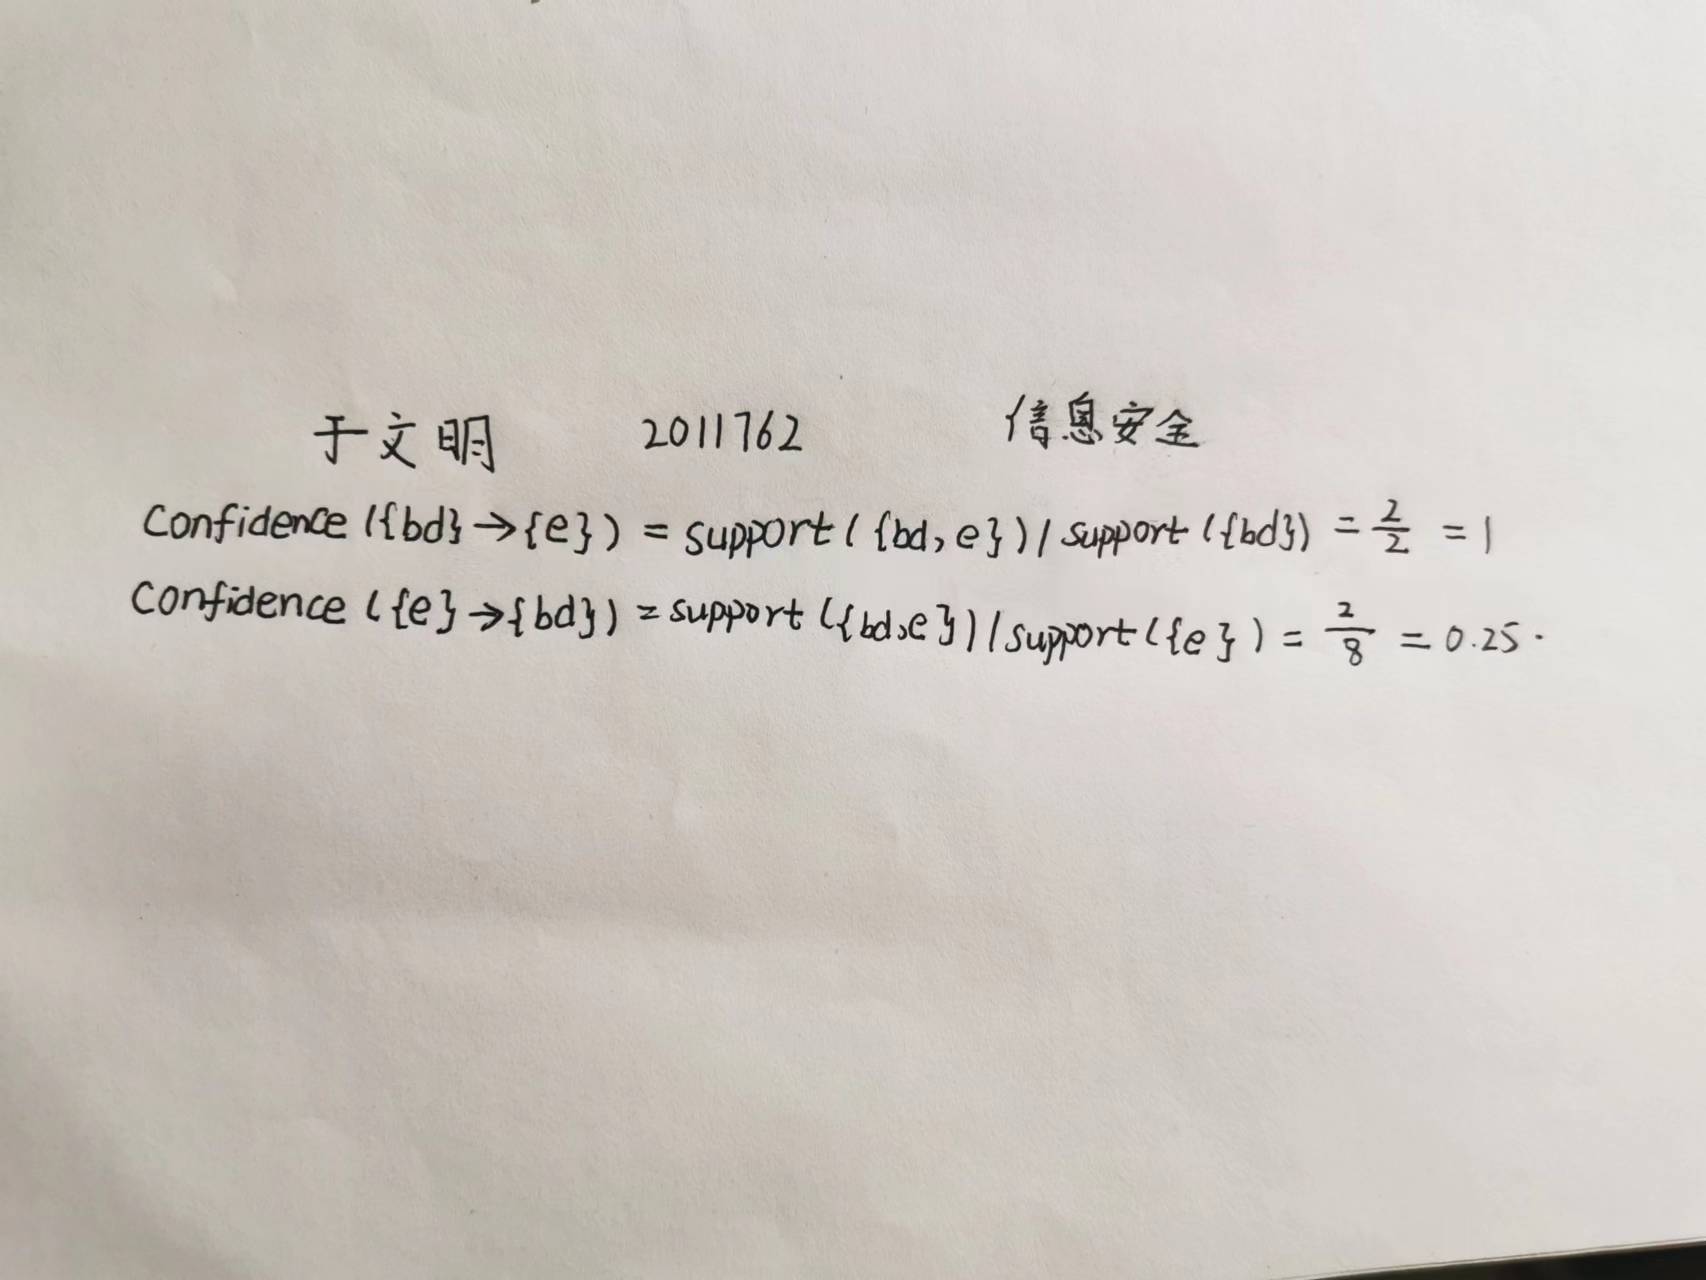 于文明 2011762 信息安全
Confidence ({bd} → {e}) = support ( {bd, e}) / support ({bd}) = 2/2 = 1
Confidence ({e} → {bd}) = support ({bd,e}) / support ({e}) = 2/8 = 0.25.